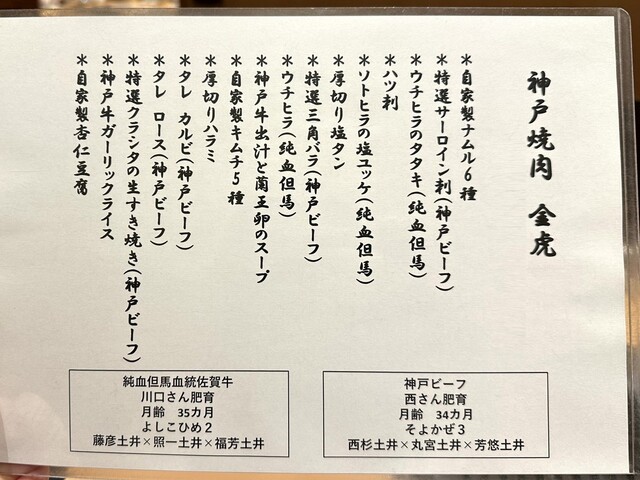 神戸焼肉 金虎
＊自家製ナムル6種
＊特選サーロイン刺(神戸ビーフ)
＊ウチヒラのタタキ(純血但馬)
＊ハツ刺
＊ソトヒラの塩ユッケ(純血但馬)
＊厚切り塩タン
＊特選三角バラ(神戸ビーフ)
＊ウチヒラ(純血但馬)
＊神戸牛出汁と蘭王卵のスープ
＊自家製キムチ5種
＊厚切りハラミ
＊タレ カルビ(神戸ビーフ)
＊タレ ロース(神戸ビーフ)
＊特選クラシタの生すき焼き(神戸ビーフ)
＊神戸牛ガーリックライス
＊自家製杏仁豆腐
神戸ビーフ
西さん肥育
月齢 34カ月
そよかぜ3
西杉土井×丸宮土井×芳悠土井
純血但馬血統佐賀牛
川口さん肥育
月齢 35カ月
よしこひめ2
藤彦土井×照一土井×福芳土井